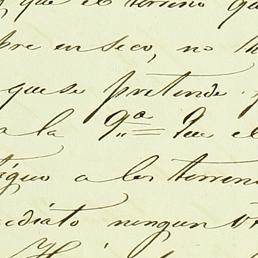 que el terreno que
pre en seco, no h
que se pretende
a la 9ª Que el
tiguo a los terren
ediato ningun